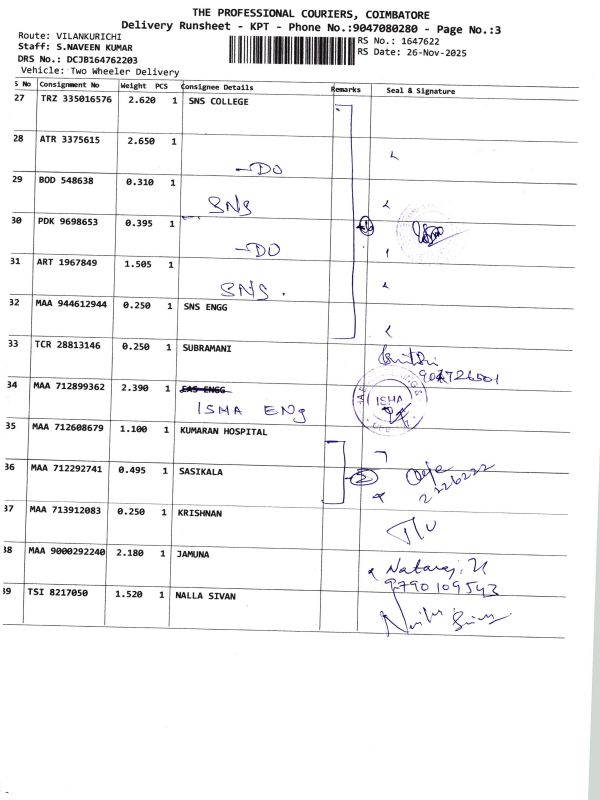 THE PROFESSIONAL COURIERS, COIMBATORE
Delivery Runsheet - KPT - Phone No.:9047080280 - Page No.:3
Route: VILANKURICHI
Staff: S.NAVEEN KUMAR
DRS No.: DCJB164762203
Vehicle: Two Wheeler Delivery
RS No.: 1647622
RS Date: 26-Nov-2025
S No Consignment No Weight PCS Consignee Details Remarks Seal & Signature
27 TRZ 335016576 2.620 1 SNS COLLEGE
28 ATR 3375615 2.650 1
-DO
29 BOD 548638 0.310 1
SNS
30 PDK 9698653 0.395 1
-DO
31 ART 1967849 1.505 1
SNS.
32 MAA 944612944 0.250 1 SNS ENGG
33 TCR 28813146 0.250 1 SUBRAMANI
34 MAA 712899362 2.390 1 EAS ENGG
ISHA ENg
ISHA
35 MAA 712608679 1.100 1 KUMARAN HOSPITAL
36 MAA 712292741 0.495 1 SASIKALA
2
37 MAA 713912083 0.250 1 KRISHNAN
38 MAA 9000292240 2.180 1 JAMUNA
Nataraj. U
9790109543
39 TSI 8217050 1.520 1 NALLA SIVAN